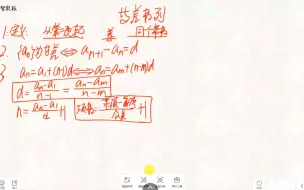 智能板
等差数列
1.定义: 从第二项起 差 同一个常数
2. {an}为等差 ⟺ an+1-an=d
3 an=a1+(n-1)d ⟺ an=am+(n-m)d
d=an-a1/n-1=an-am/n-m
n=an-a1/d+1 项数=末项-首项/公差+1